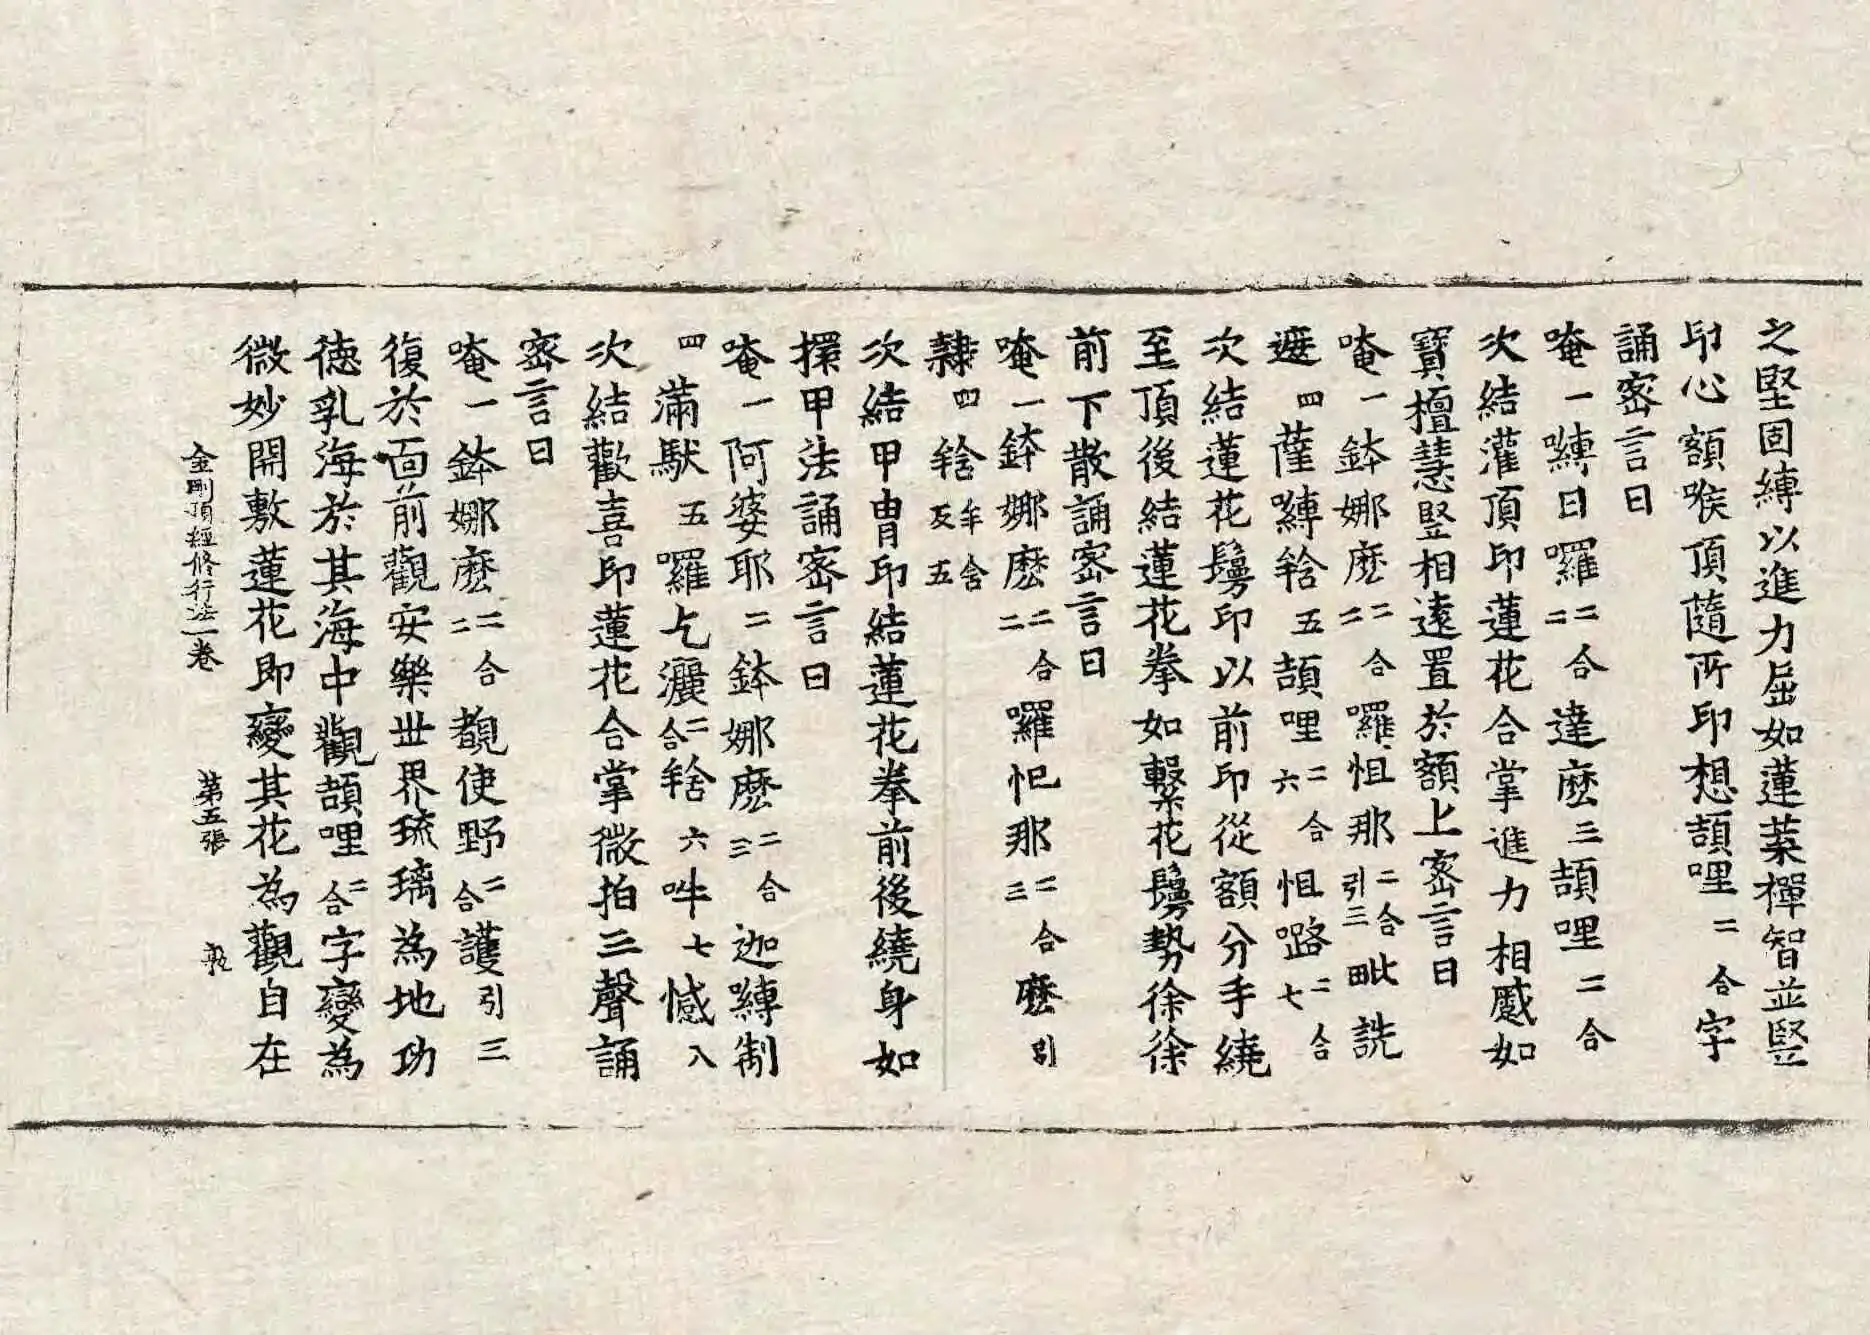 之堅固縛以進力屈如蓮葉禪智並竪
印心額喉頂隨所印想頡哩二合字
誦密言曰
唵一嚩日囉二合二達麽三頡哩二合
次結灌頂印蓮花合掌進力相蹙如
寶檀慧竪相遠置於額上密言曰
唵一鉢娜麽二合二囉怛那二合引三毗詵
遮四薩嚩𤚥五頡哩二合六怛𡀔二合七
次結蓮花鬘印以前印從額分手繞
至頂後結蓮花拳如繫花鬘勢徐徐
前下散誦密言曰
唵一鉢娜麽二合二囉怛那二合三麽引
隸四𤚥牟含反五
次結甲冑印結蓮花拳前後繞身如
擐甲法誦密言曰
唵一阿婆耶二鉢娜麽二合三迦嚩制
四滿馱五囉乞灑二合𤚥六吽七憾八
次結歡喜印蓮花合掌微拍三聲誦
密言曰
唵一鉢娜麽二合二覩使野二合護引三
復於面前觀安樂世界琉璃為地功
德乳海於其海中觀頡哩二合字變為
微妙開敷蓮花即變其花為觀自在
金剛頂經修行法一卷 第五張